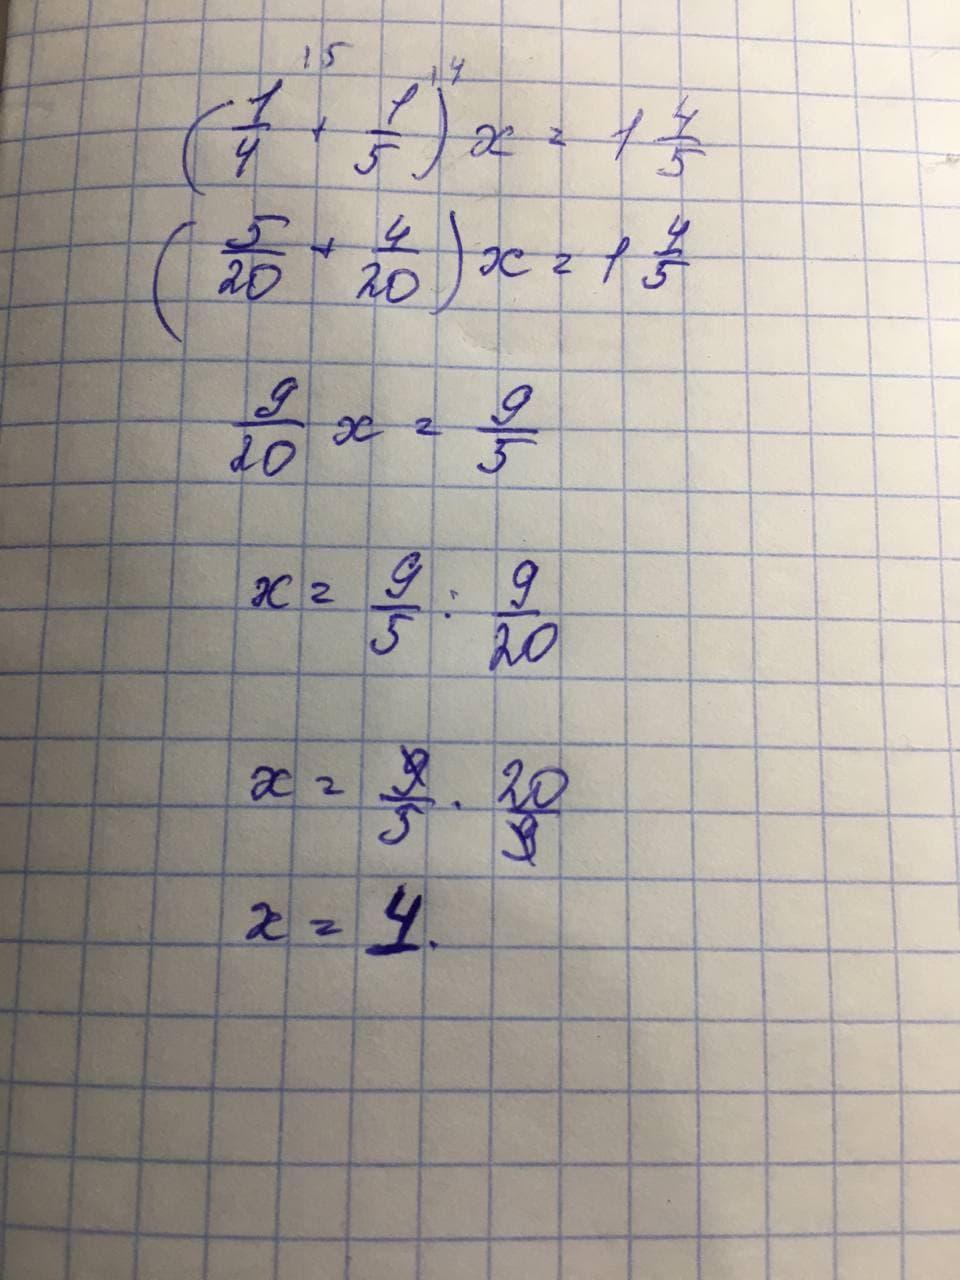 (1/4 ·5 + 1/5 ·4) x = 1 4/5
(5/20 + 4/20) x = 1 4/5
9/20 x = 9/5
x = 9/5 : 9/20
x = 9/5 · 20/9
x = 4.